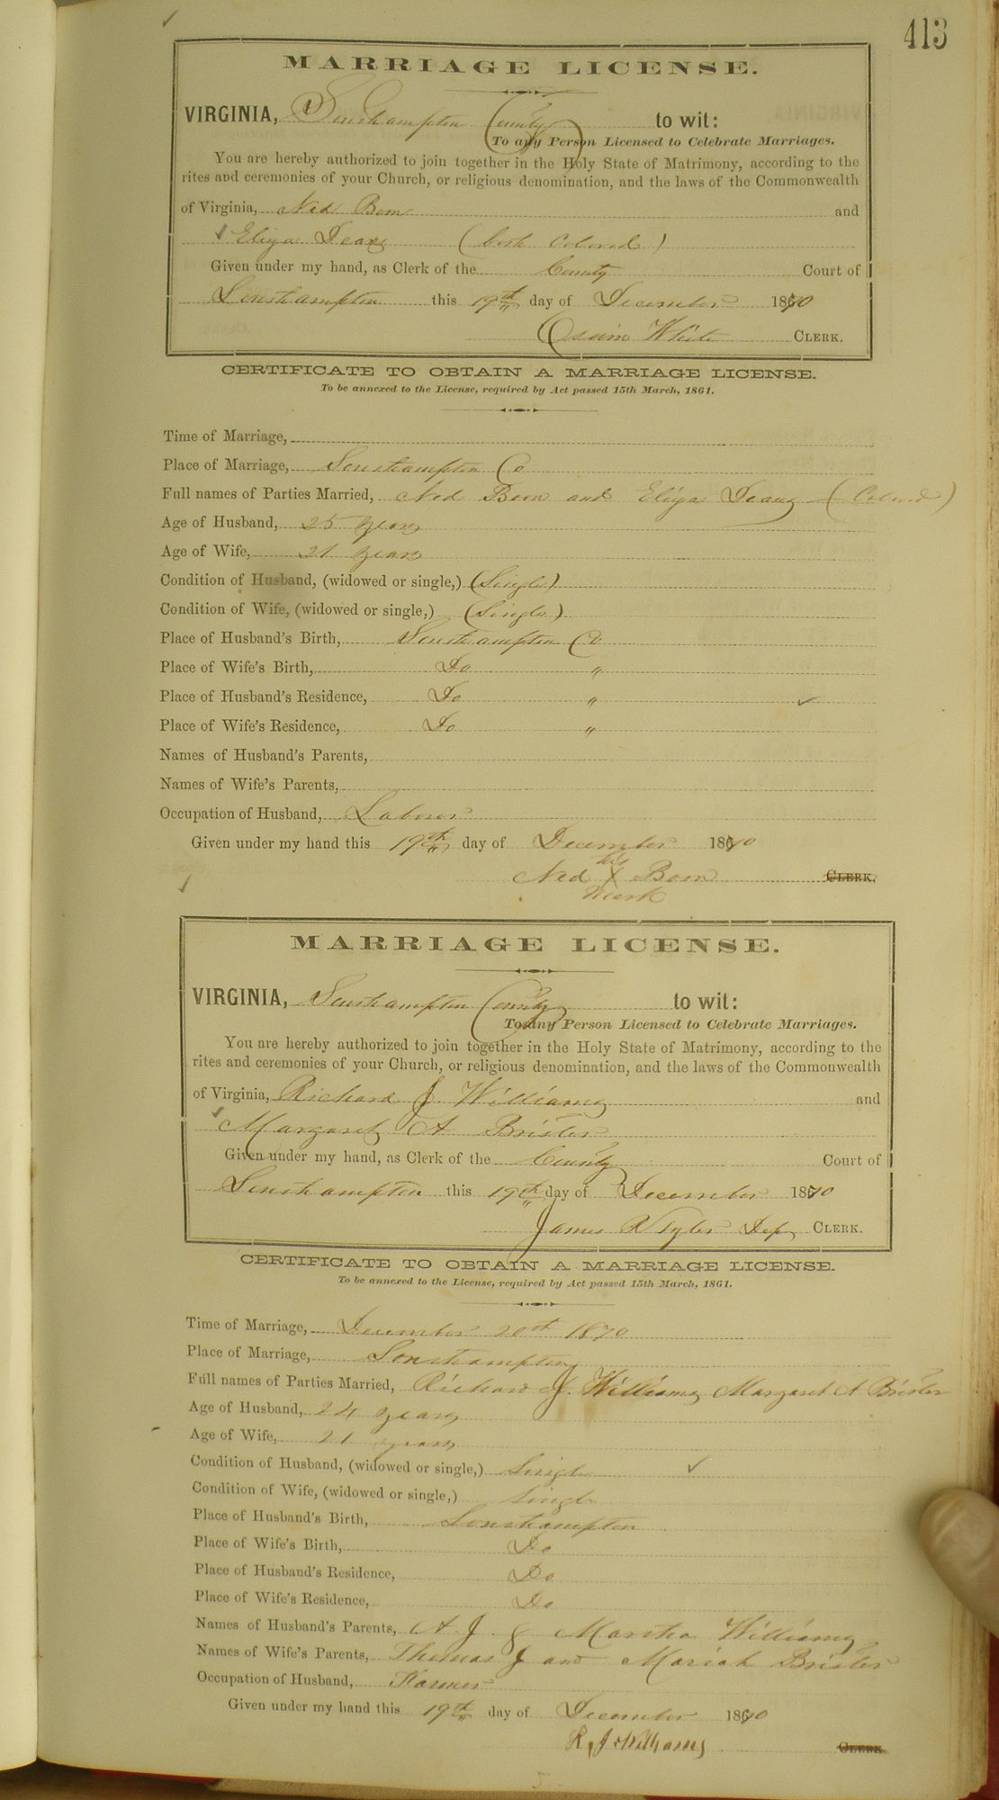 413
MARRIAGE LICENSE.
VIRGINIA, Southampton County to wit:
To any Person Licensed to Celebrate Marriages.
You are hereby authorized to join together in the Holy State of Matrimony, according to the
rites and ceremonies of your Church, or religious denomination, and the laws of the Commonwealth
of Virginia, Ned Boon and
Eliza (both Colored)
Given under my hand, as Clerk of the County Court of
Southampton this 19th day of December 1870
White CLERK.
CERTIFICATE TO OBTAIN A MARRIAGE LICENSE.
To be annexed to the License, required by Act passed 15th March, 1861.
Time of Marriage,
Place of Marriage, Southampton Co
Full names of Parties Married, Ned Boon and Eliza (Colored)
Age of Husband, 25 years
Age of Wife, 21 years
Condition of Husband, (widowed or single,) (Single)
Condition of Wife, (widowed or single,) (Single)
Place of Husband's Birth, Southampton Co
Place of Wife's Birth, Do "
Place of Husband's Residence, Do "
Place of Wife's Residence, Do "
Names of Husband's Parents,
Names of Wife's Parents,
Occupation of Husband, Laborer
Given under my hand this 19th day of December 1870
his
Ned X Boon CLERK.
mark
MARRIAGE LICENSE.
VIRGINIA, Southampton County to wit:
To any Person Licensed to Celebrate Marriages.
You are hereby authorized to join together in the Holy State of Matrimony, according to the
rites and ceremonies of your Church, or religious denomination, and the laws of the Commonwealth
of Virginia, Richard J Williams and
Margaret A Brister
Given under my hand, as Clerk of the County Court of
Southampton this 19th day of December 1870
James Dep CLERK.
CERTIFICATE TO OBTAIN A MARRIAGE LICENSE.
To be annexed to the License, required by Act passed 15th March, 1861.
Time of Marriage, December 20th 1870
Place of Marriage, Southampton
Full names of Parties Married, Richard J. Williams Margaret A Brister
Age of Husband, 24 years
Age of Wife, 21 years
Condition of Husband, (widowed or single,) Single
Condition of Wife, (widowed or single,) Single
Place of Husband's Birth, Southampton
Place of Wife's Birth, Do
Place of Husband's Residence, Do
Place of Wife's Residence, Do
Names of Husband's Parents, A. J. & Martha Williams
Names of Wife's Parents, Thomas J and Mariah Brister
Occupation of Husband, Farmer
Given under my hand this 19th day of December 1870
R, J Williams CLERK.